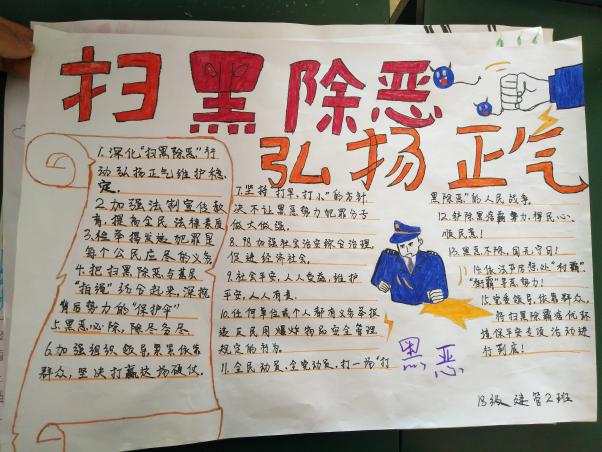 扫黑除恶
弘扬正气
1.深化"扫黑除恶"行
动弘扬正气维护稳
定.
2.加强法制宣传教
育,提高全民法律素质
3.检举揭发违犯罪是
每个公民应尽的义务
4.把扫黑除恶与基层
"拍蝇"结合起来,深挖
背后势力的"保护伞"
5.黑恶必除,除尽务尽.
6.加强组织领导,紧紧依靠
群众,坚决打赢这场硬仗.
7.坚持"打早、打小"的方针
决不让黑恶势力犯罪分子
做大做强.
8.加强社会治安综合治理,
促进经济社会.
9.社会平安,人人受益,维护
平安,人人有责.
10.任何单位或个人都有义务举报
违反民用爆炸物品安全管理
规定的行为.
11.全民动员、全党动员,打一场"打
黑除恶"的人民战争.
12.铲除黑痞霸势力,释民心、
顺民意!
13.黑恶不除,国无宁日!
14.依法严厉惩处"村霸"、
"街霸"等恶势力!
15.党委领导,依靠群众,
将扫黑除霸痞优环
境保平安专项活动进
行到底!
黑恶
18级 建管2班